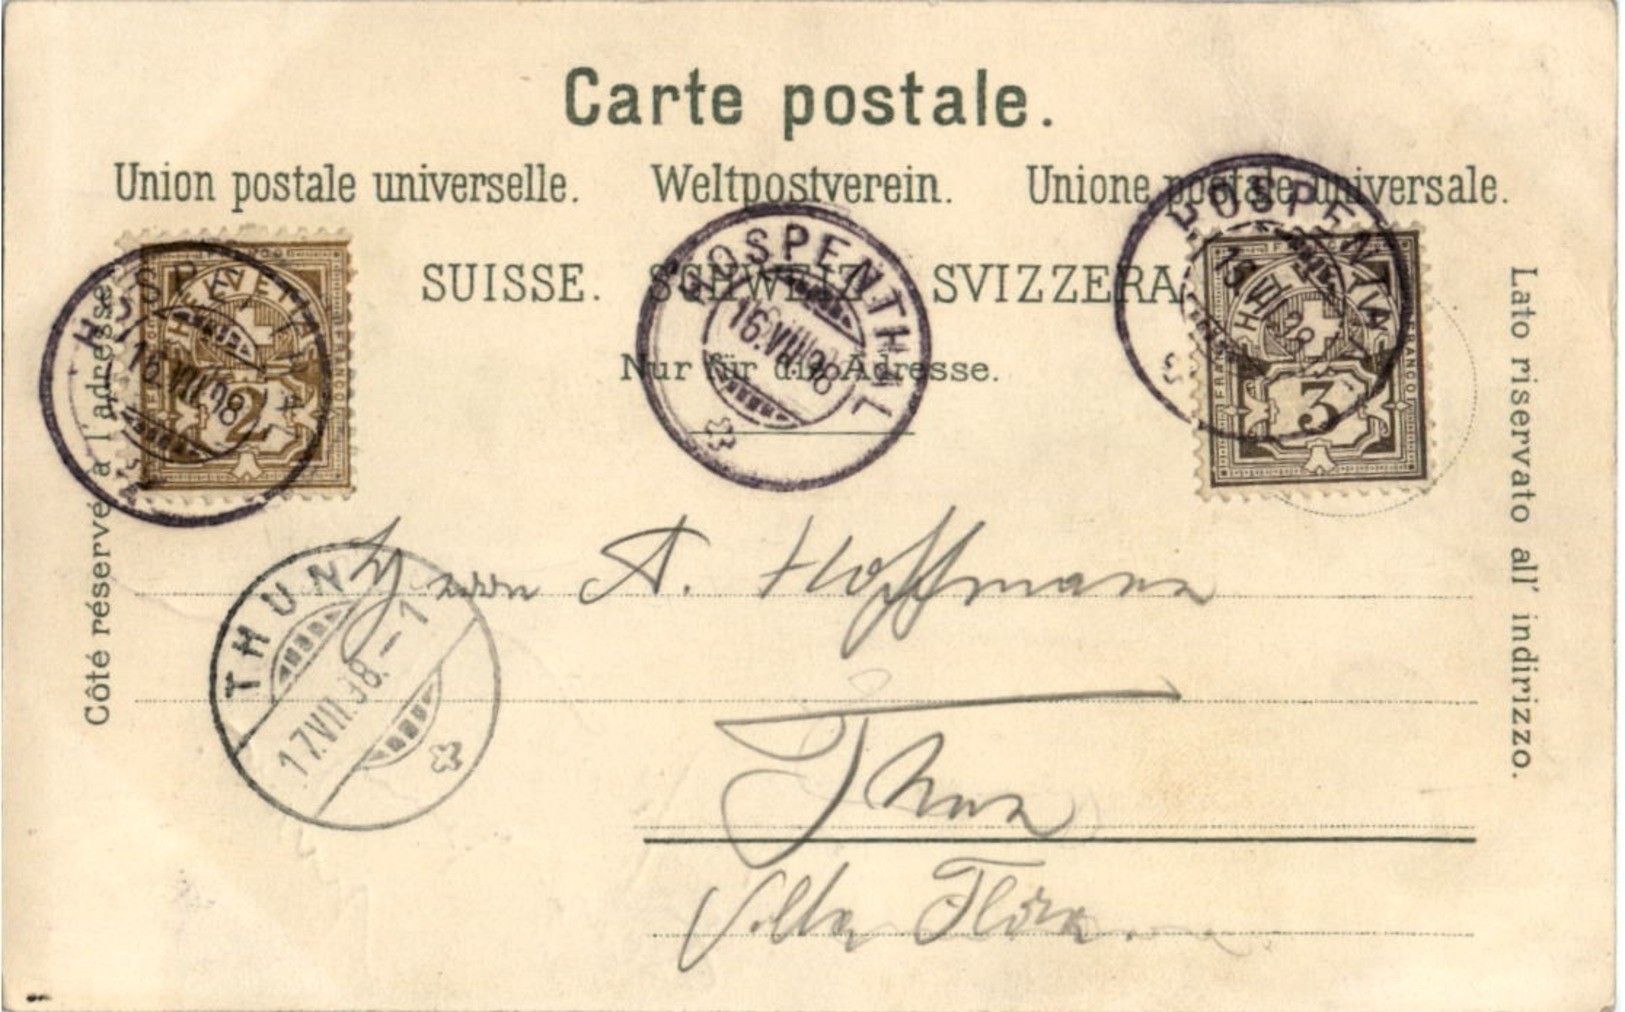 Carte postale.
Union postale universelle. Weltpostverein. Unione postale universale.
SUISSE. SCHWEIZ. SVIZZERA
Nur für die Adresse.
Côté réservé à l'adresse
Lato riservato all' indirizzo.
HOSPENTHAL
16.VII.98
HELVETIA
FRANCO
2
HOSPENTHAL
16.VII.98
HOSPENTHAL
16.VII.98
FRANCO
FRANCO
3
THUN
17.VII.98.-1
Herrn A. Hoffmann
Thun
Villa Flora